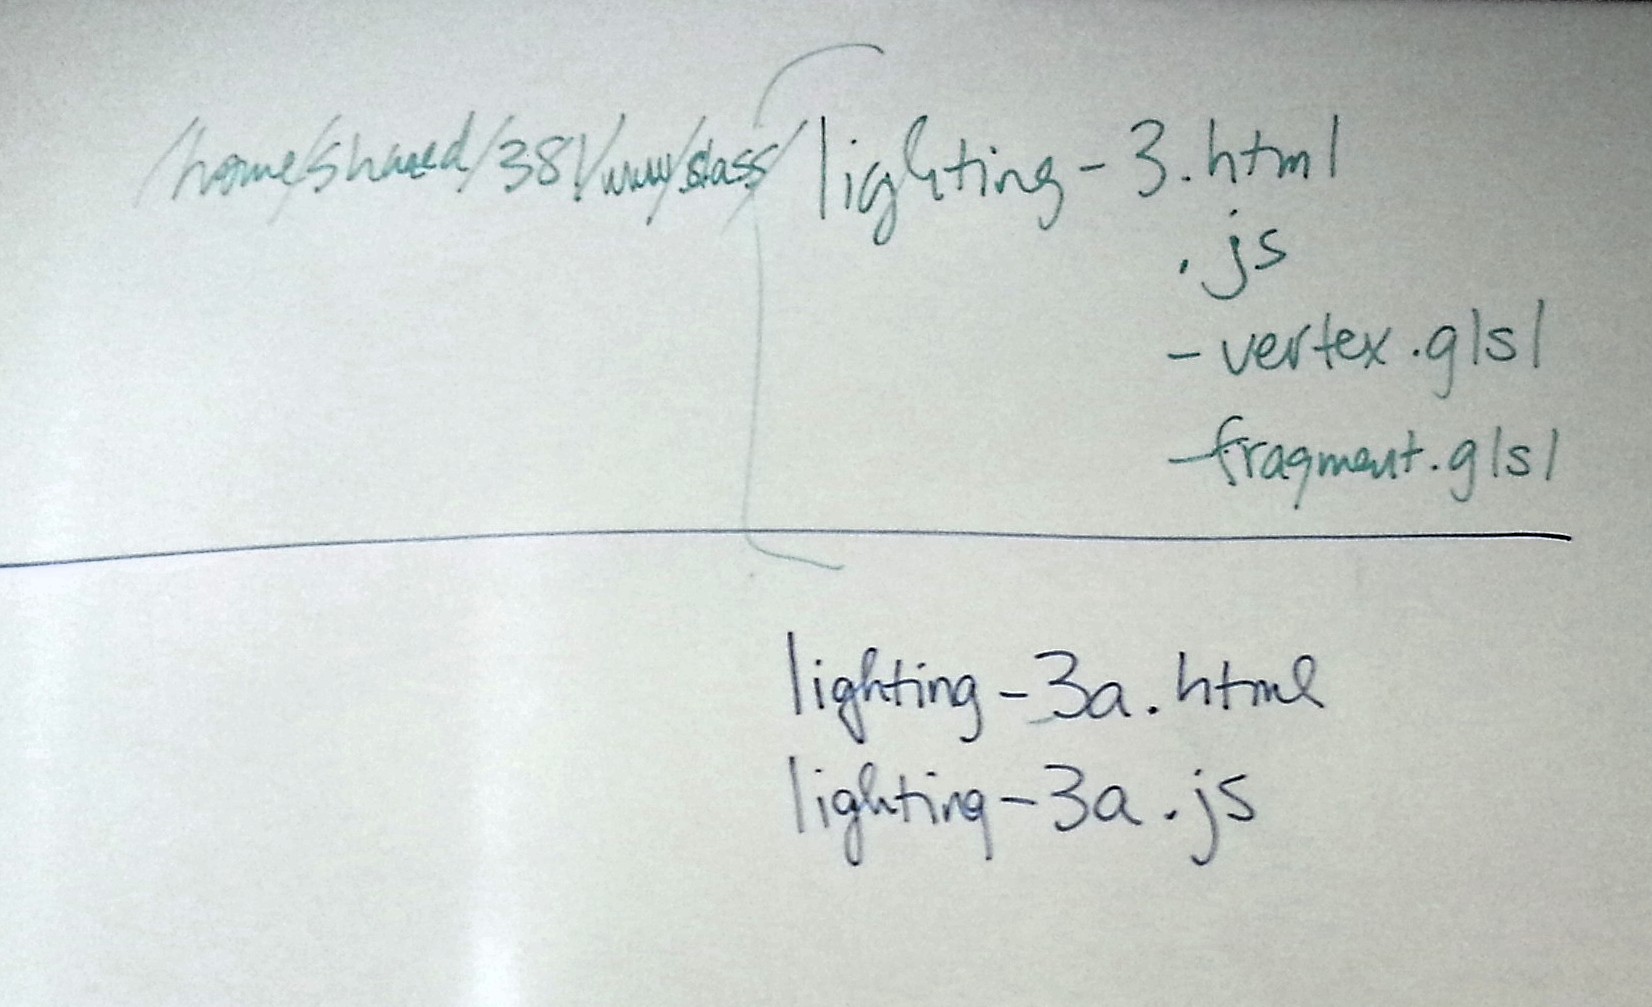 /home/shared/381/www/class/lighting-3.html
.js
-vertex.glsl
-fragment.glsl
lighting-3a.html
lighting-3a.js